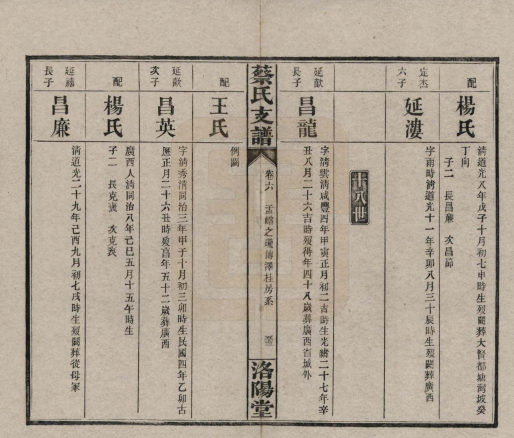 配
楊氏
清道光八年戊子十月初七申時生歿闕葬大賢都塘灣坡癸
丁向
子二 長昌廉 次昌節
定杰
六子
延漊
字雨時清道光十一年辛卯八月三十辰時生歿闕葬廣西
十八世
延歡
長子
昌龍
字清雲清咸豐四年甲寅正月初二吉時生光緒二十七年辛
丑八月二十六吉時歿得年四十八歲葬廣西百城外
蔡氏支譜
卷六
房系
洛陽堂
配
王氏
例闕
延歡
次子
昌英
字清秀清同治三年甲子十月初三卯時生民國四年乙卯古
曆正月二十六丑時歿享年五十二歲葬廣西
配
楊氏
廣西人清同治八年己巳五月十五午時生
子二 長克 次克
延禧
長子
昌廉
清道光二十九年己酉九月初七戌時生歿闕葬從母冢